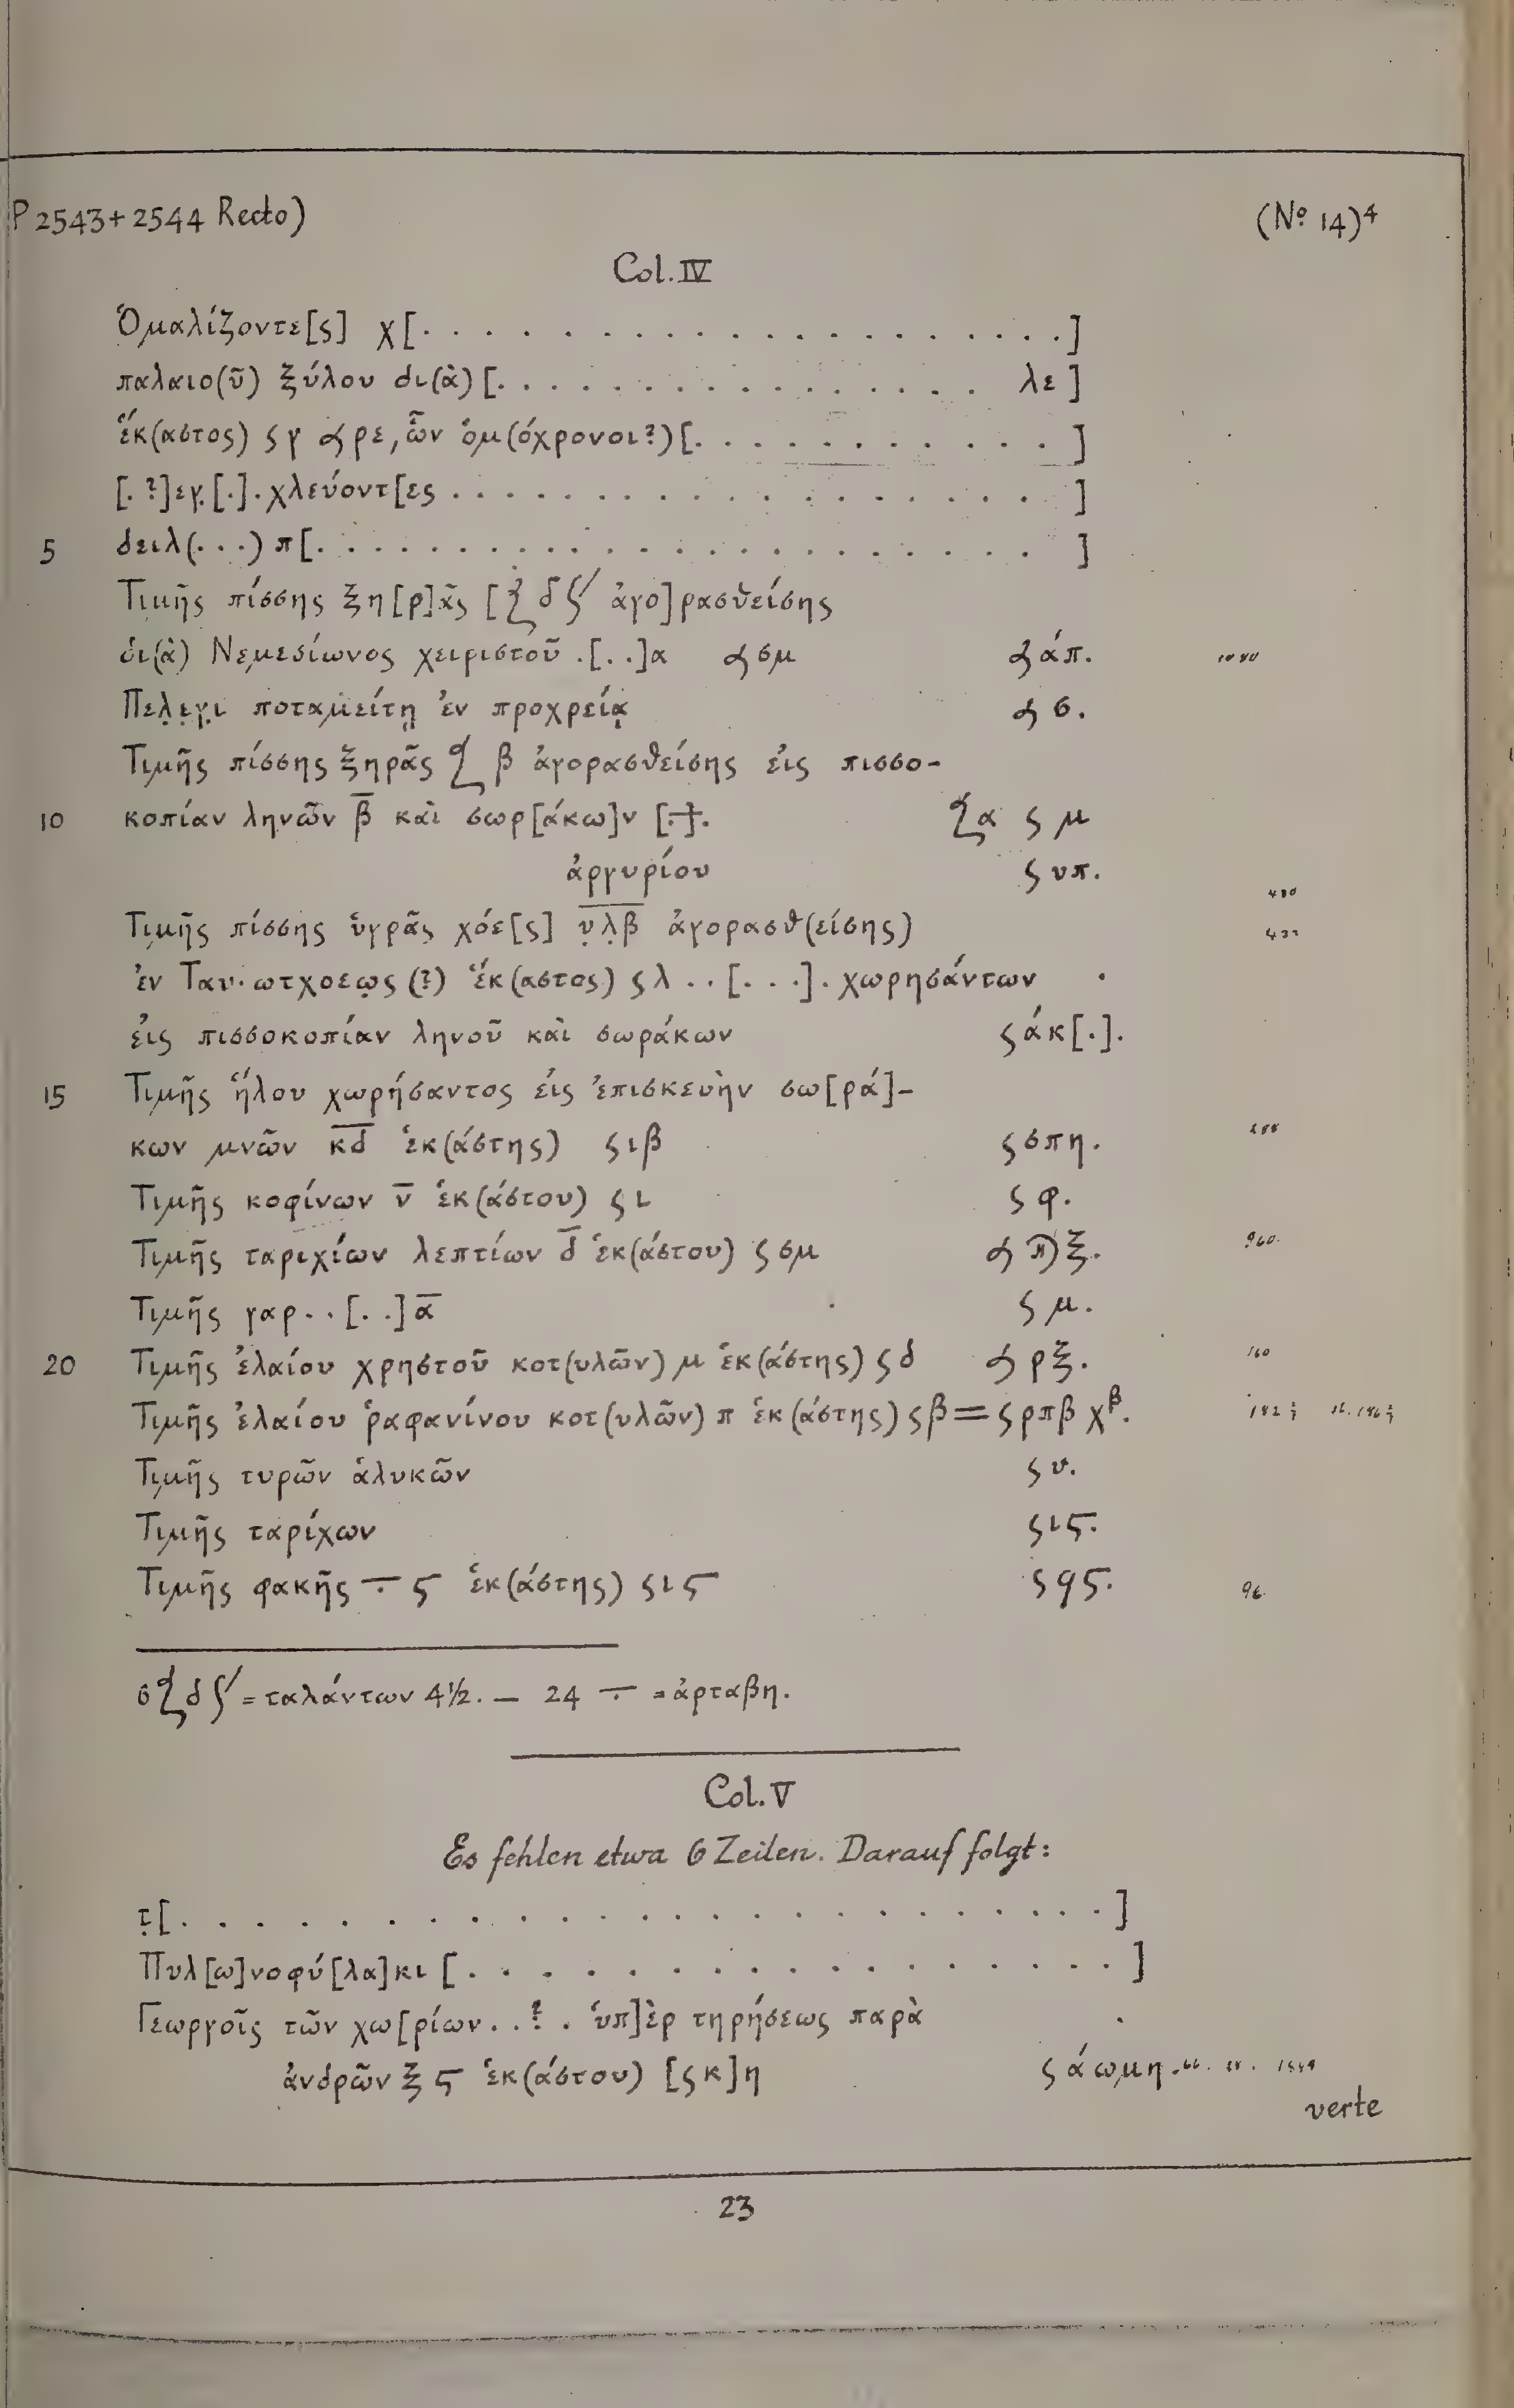 P 2543 + 2544 Recto) (Nº 14)⁴
Col. IV
Ὁμαλίζοντε[ς] χ[. . . . . . . . . . . . . . . . . . . .]
παλαιο(ῦ) ξύλου δι(ὰ) [. . . . . . . . . . . . . . . λε]
ἕκ(αστος) ϛγ 𐅻 ρε, ὧν ὁμ(όχρονοι?) [. . . . . . . . . . . .]
[. ?]εγ̣[.].χλεύοντ[ες . . . . . . . . . . . . . . . . . ]
5 δειλ(. . .) π[. . . . . . . . . . . . . . . . . . . . . ]
Τιμῆς πίσσης ξη[ρ]ᾶς [𐅺 δ ʃʹ ἀγο]ρασθείσης
δι(ὰ) Νεμεσίωνος χειριστοῦ .[. .]α 𐅻 σμ 𐅻 άπ. 1080
Πελ̣ε̣γ̣ι ποταμείτῃ ἐν προχρείᾳ 𐅻 σ.
Τιμῆς πίσσης ξηρᾶς 𐅺 β ἀγορασθείσης εἰς πισσο-
10 κοπίαν ληνῶν β̅ καὶ σωρ[άκω]ν [.†]. 𐅺α ϛ μ
ἀργυρίου ϛ υπ.
480
Τιμῆς πίσσης ὑγρᾶς χόε[ς] υ̣λ̣β ἀγορασθ(είσης) 432
ἐν Ταν.ωτχοεω̣ς (?) ἕκ(αστος) ϛλ . . [. . .] . χωρησάντων
εἰς πισσοκοπίαν ληνοῦ καὶ σωράκων ϛ άκ[.].
15 Τιμῆς ἥλου χωρήσαντος εἰς ἐπισκευὴν σω[ρά]-
κων μνῶν κ̅δ̅ ἑκ(άστης) ϛιβ ϛσπη. 288
Τιμῆς κοφίνων ν̅ ἑκ(άστου) ϛι ϛ φ.
Τιμῆς ταριχίων λεπτίων δ̅ ἑκ(άστου) ϛσμ 𐅻 ϡξ. 960.
Τιμῆς γαρ. . [. .] α̅ ϛ μ.
20 Τιμῆς ἐλαίου χρηστοῦ κοτ(υλῶν) μ ἑκ(άστης) ϛδ 𐅻 ρξ. 160
Τιμῆς ἐλαίου ῥαφανίνου κοτ(υλῶν) π ἑκ(άστης) ϛβ = ϛρπβ χᵝ.
Τιμῆς τυρῶν ἁλυκῶν ϛ ν.
Τιμῆς ταρίχων ϛιϛ.
Τιμῆς φακῆς ÷ ϛ ἑκ(άστης) ϛιϛ ϛϙϛ. 96.
6 𐅺 δ ʃʹ = ταλάντων 4½. — 24 ÷ = ἀρταβη.
Col. V
Es fehlen etwa 6 Zeilen. Darauf folgt:
τ̣[. . . . . . . . . . . . . . . . . . . . . . . .]
Πυλ[ω]νοφύ[λα]κι [. . . . . . . . . . . . . . . . .]
Γεωργοῖς τῶν χω[ρίων . . ? . ὑπ]ὲρ τηρήσεως παρὰ
ἀνδρῶν ξϛ ἑκ(άστου) [ϛκ]η ϛ άωμη.
verte
23